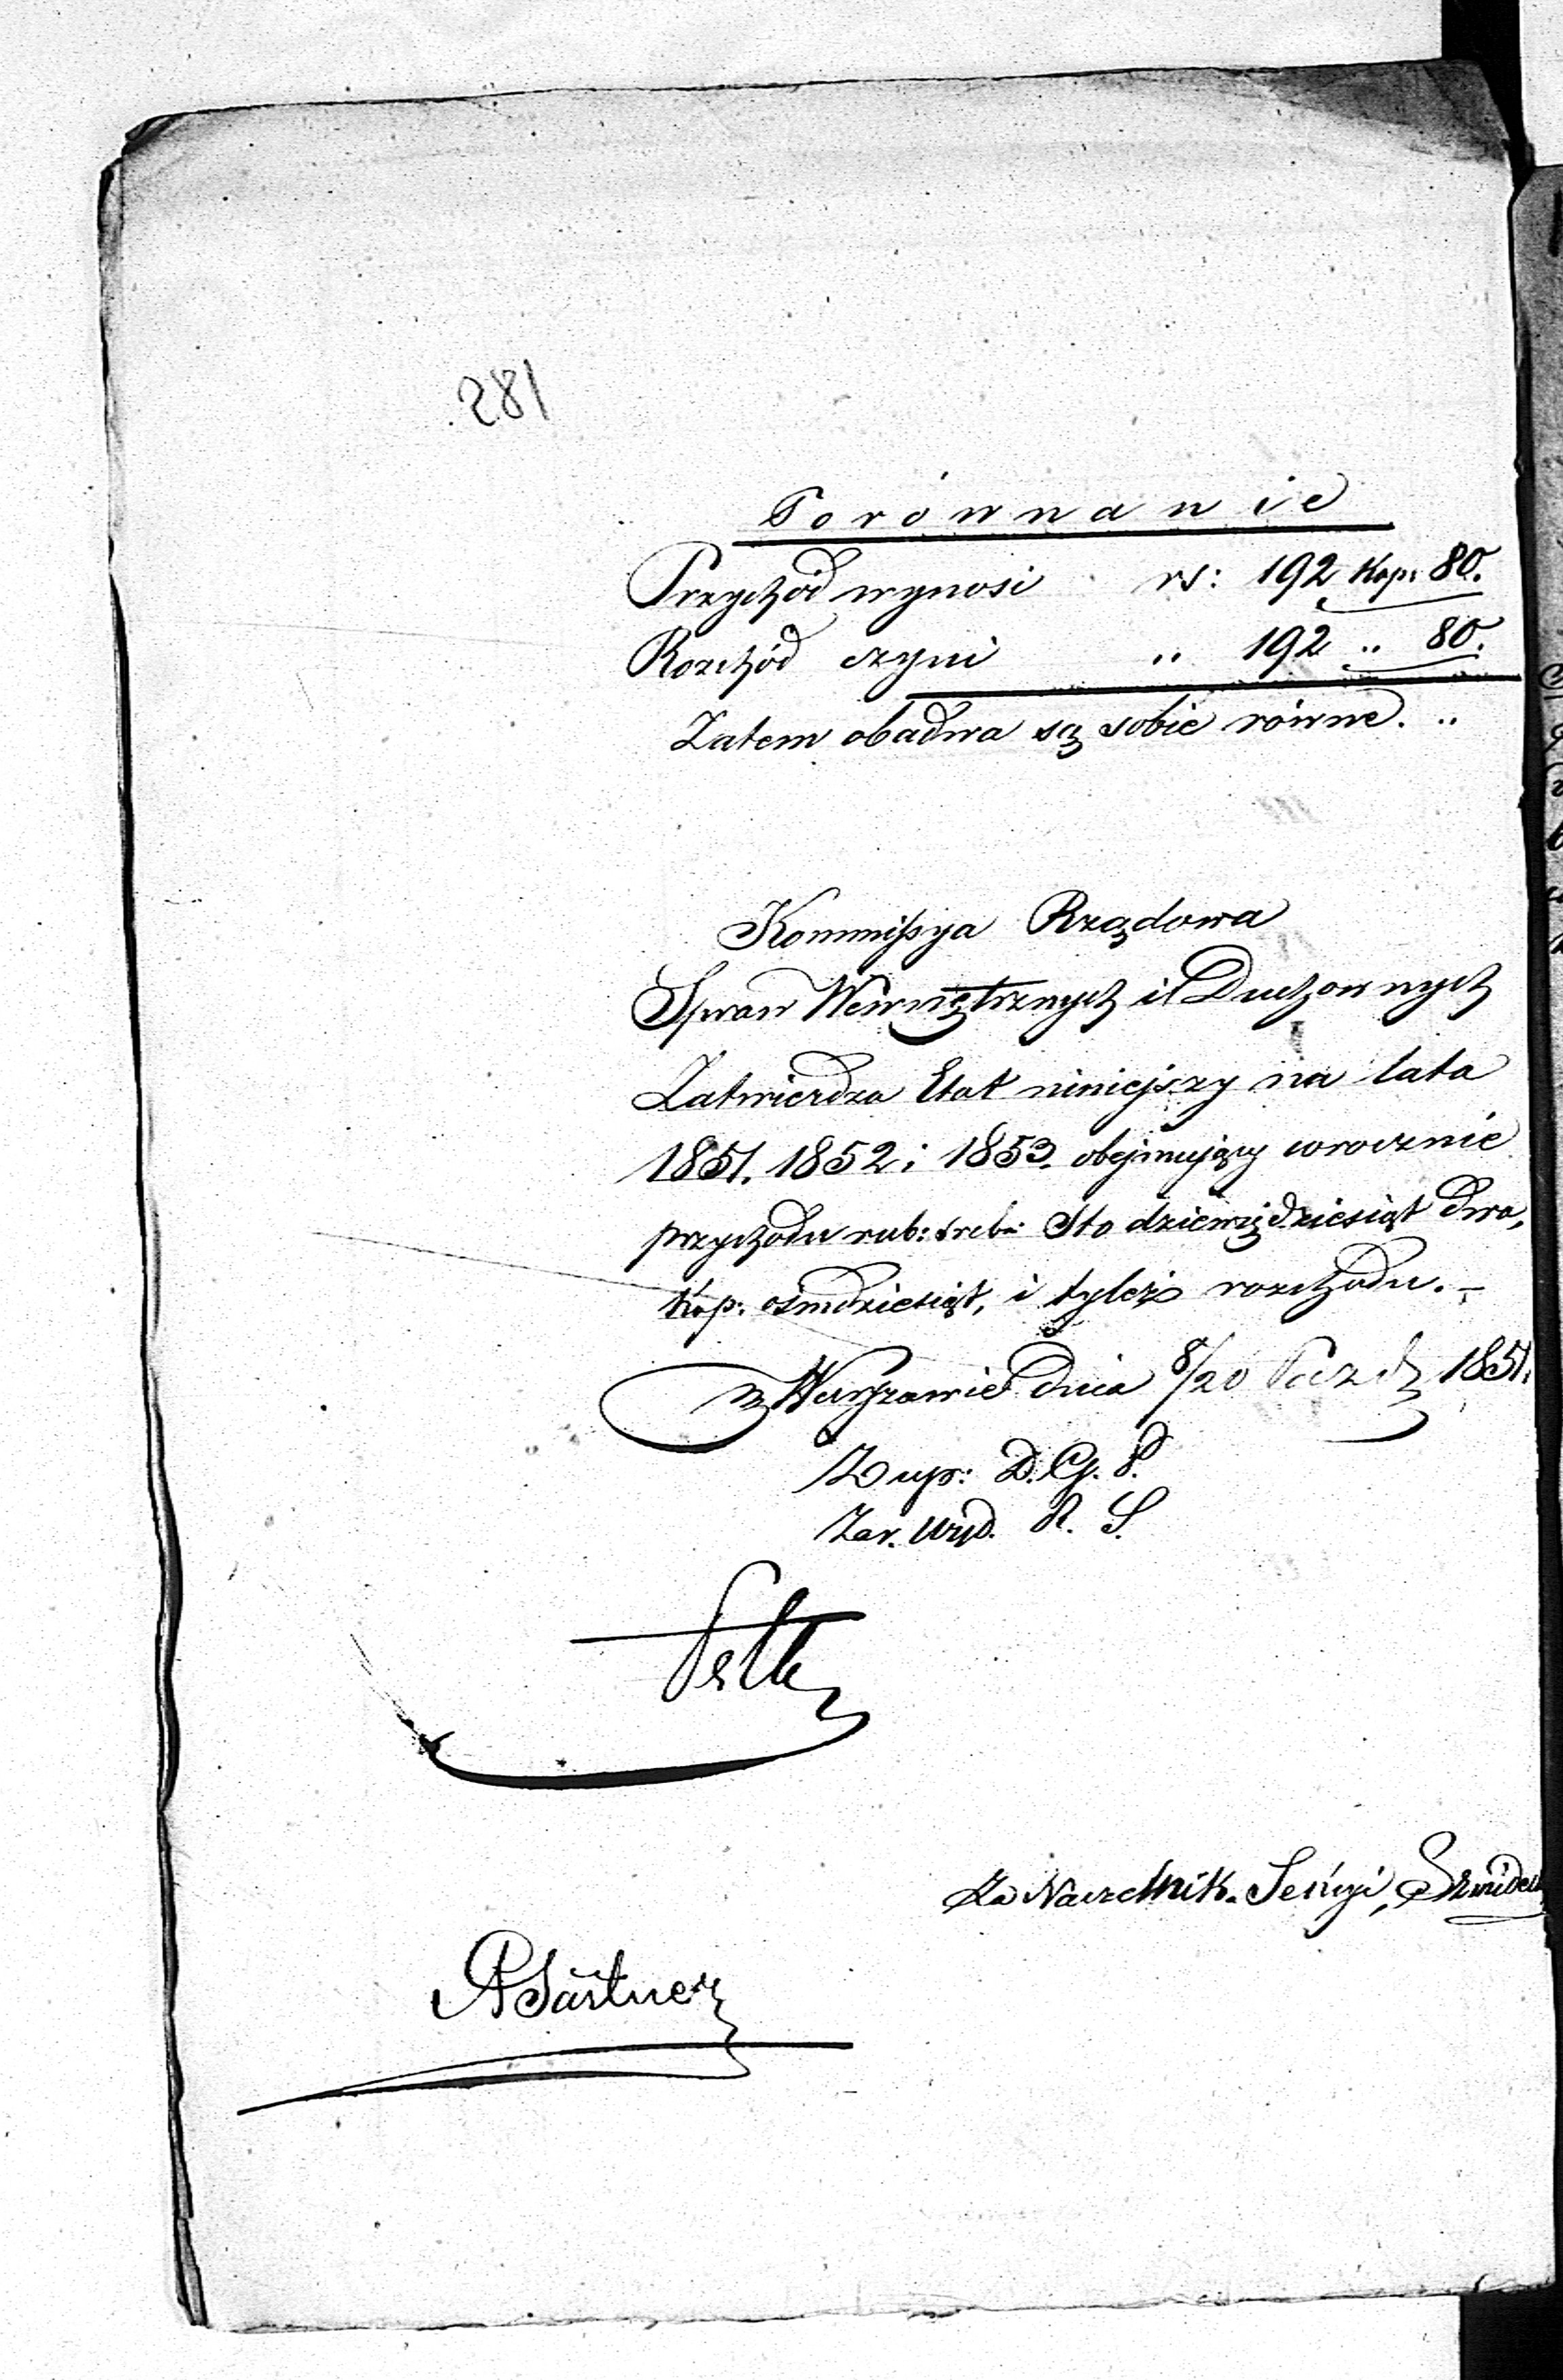 281
Porównanie
Przychód wynosi rs: 192 Kop: 80.
Rozchód czyni „ 192 „ 80.
Zatem obadwa są sobie równe. „
Kommissya Rządowa
Spraw Wewnętrznych i Duchownych
Zatwierdza Etat niniejszy na lata
1851. 1852 i 1853. obejmujący wrocznie
przychodu rub: sreb: Sto dziewięćdziesiąt dwa,
kop: ośmdziesiąt, i tyleż rozchodu. –
w Warszawie dnia 8/20 Paźdź 1851.
Z up: D. G. P.
Zar. Wyd. R. S.
Za Naczelnik. Sekcyi,